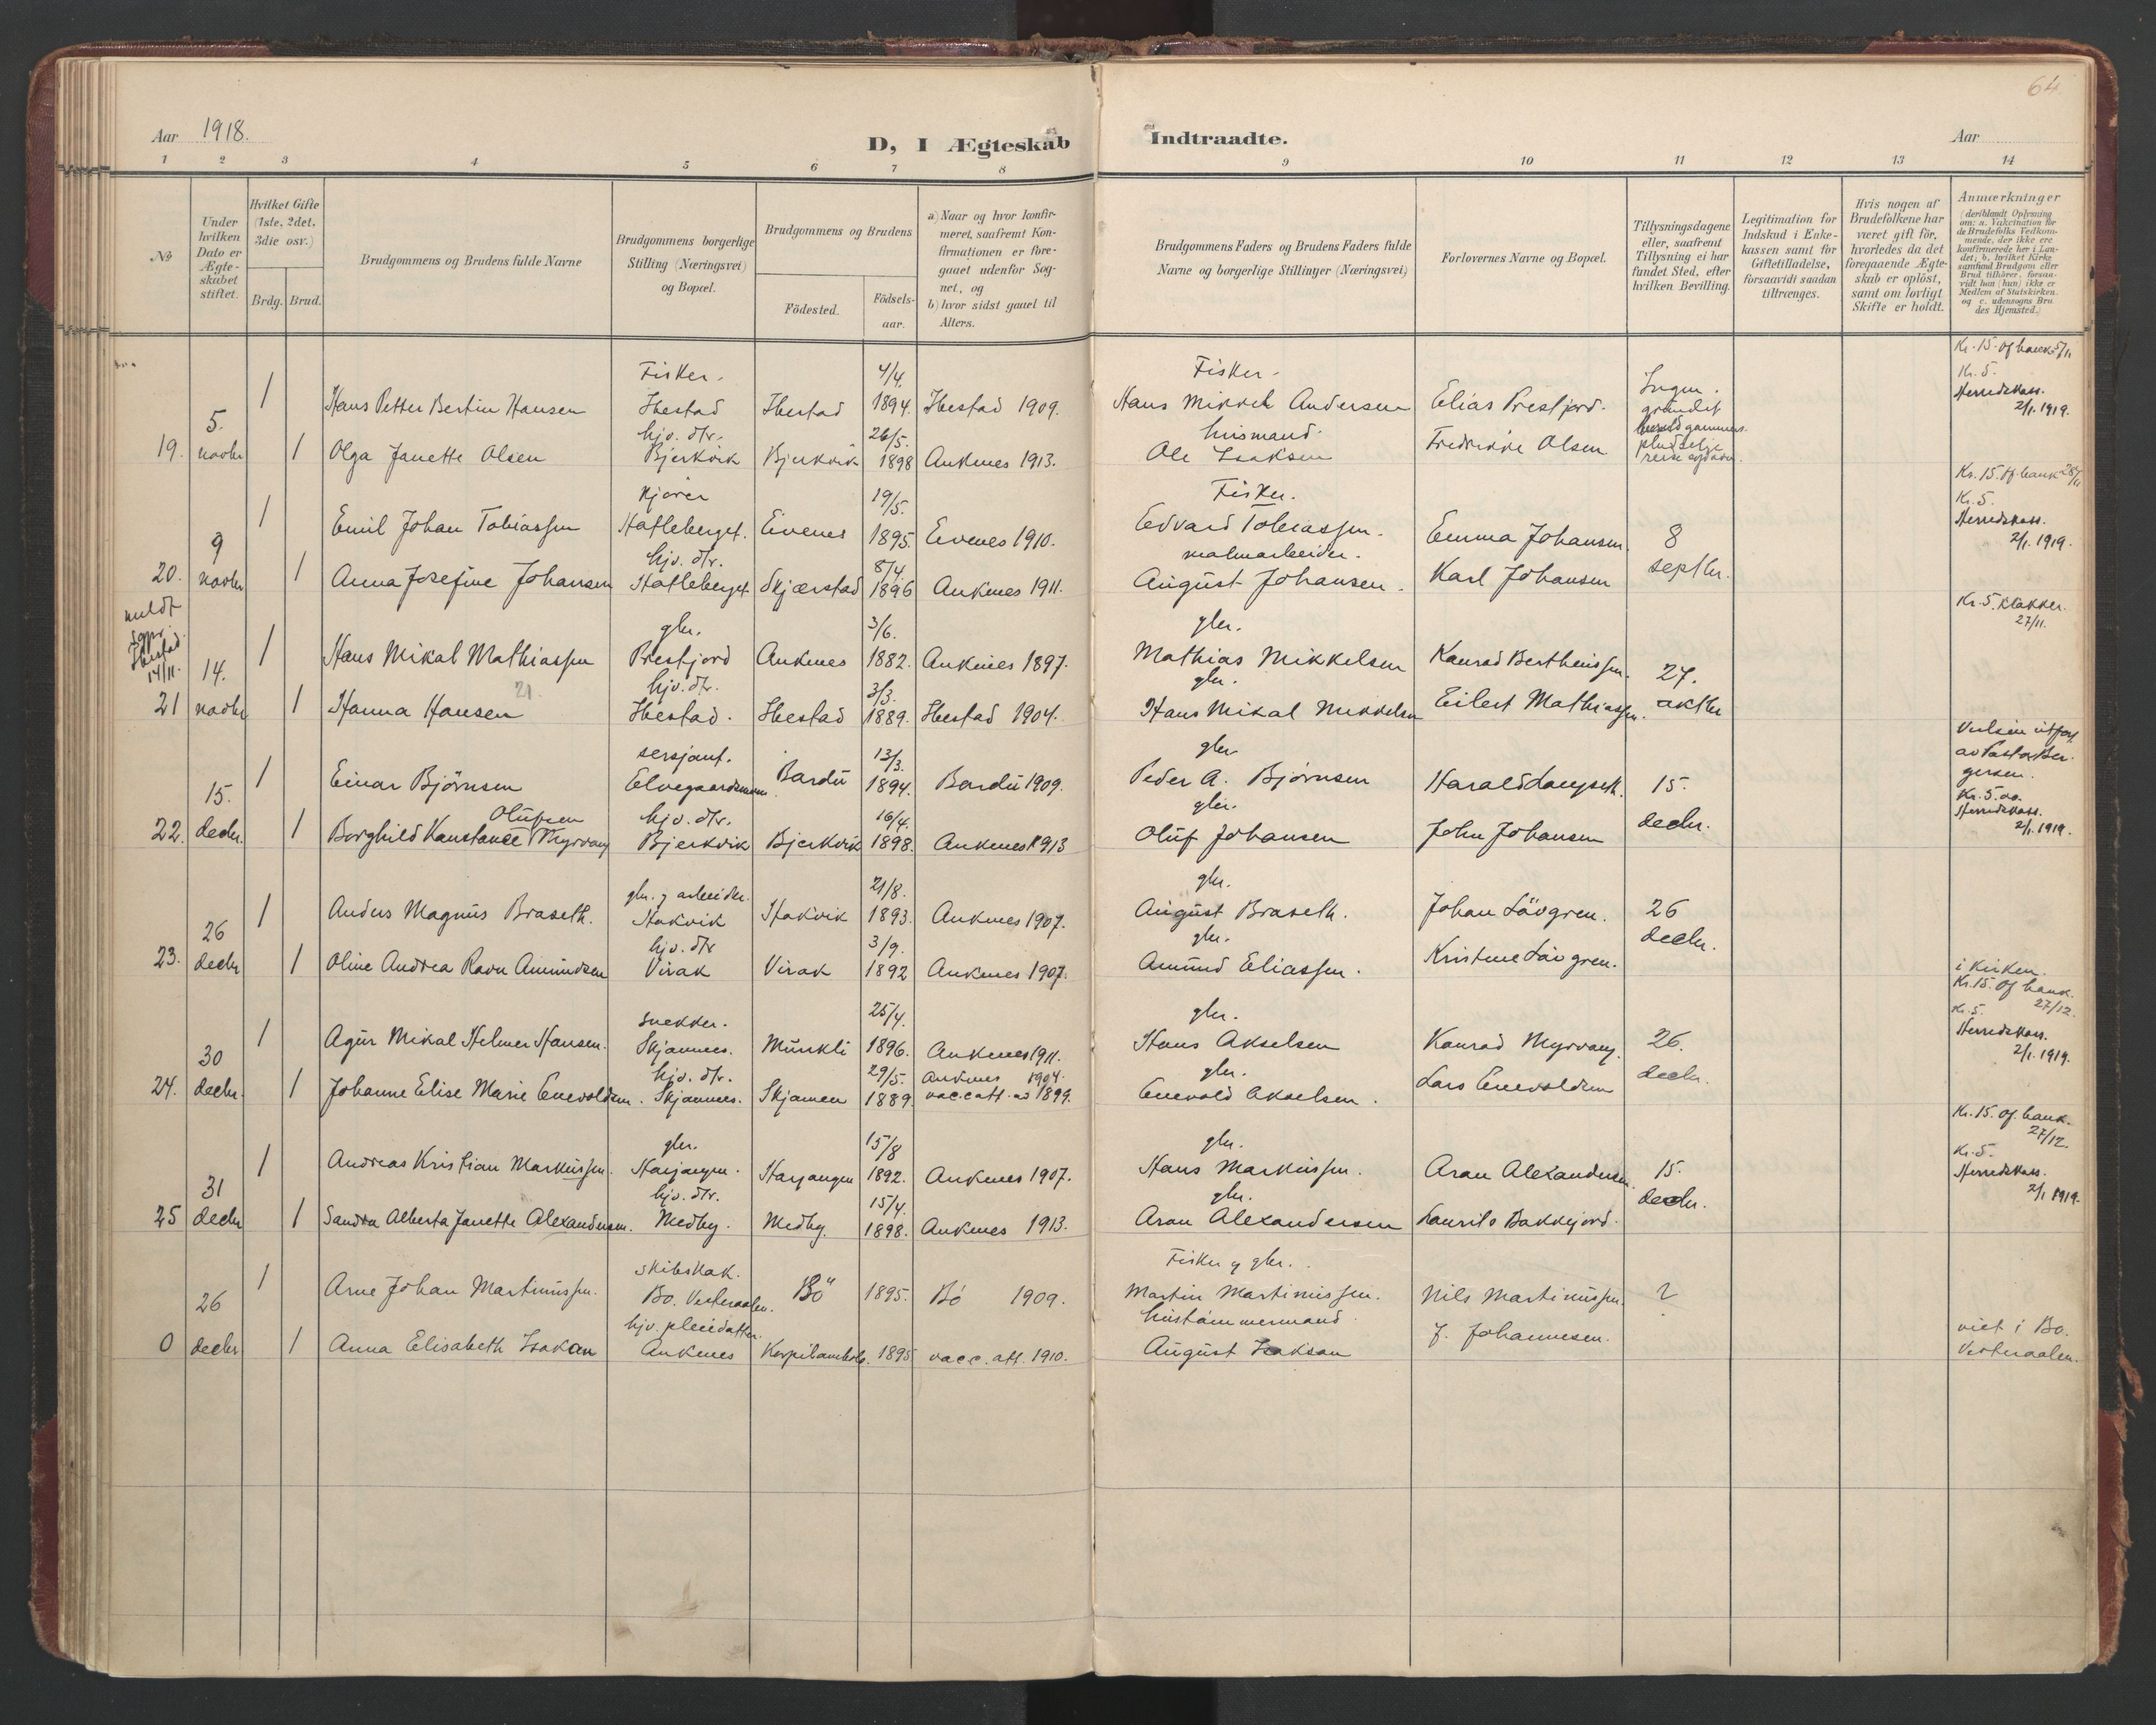 64.
Aar 1918.
D, I Ægteskab
Indtraadte.
Aar
1 2 3 4 5 6 7 8 9 10 11 12 13 14
No
Under hvilken Dato er Ægteskabet stiftet.
Hvilket Gifte (1ste, 2det, 3die osv.)
Brdg. Brud.
Brudgommens og Brudens fulde Navne
Brudgommens borgerlige Stilling (Næringsvei) og Bopæl.
Brudgommens og Brudens
Födested.
Födsels-aar.
a) Naar og hvor konfirmeret, saafremt Konfirmationen er foregaaet udenfor Sognet, og
b) hvor sidst gaaet til Alters.
Brudgommens Faders og Brudens Faders fulde Navne og borgerlige Stillinger (Næringsvei)
Forlovernes Navne og Bopæl.
Tillysningsdagene eller, saafremt Tillysning ei har fundet Sted, efter hvilken Bevilling.
Legitimation for Indskud i Enkekassen samt for Giftetilladelse, forsaavidt saadan tiltrænges.
Hvis nogen af Brudefolkene har været gift för, hvorledes da det foregaaende Ægteskab er oplöst, samt om lovligt Skifte er holdt.
Anmærkninger
(deriblandt Oplysning om: a. Vakcination for de Brudefolks Vedkommende, der ikke ere konfirmerede her i Landet; b. hvilket Kirkesamfund Brudgom eller Brud tilhörer, forsaavidt han (hun) ikke er Medlem af Statskirken. og c. udensogns Brudes Hjemsted.)
Kr. 15. Of bank 5/11
Kr. 5.
Herredskass.
2/1. 1919.
Fisker. 4/4. Fisker.
1 Hans Petter Bertin Hansen Ibestad Ibestad 1894. Ibestad 1909. Hans Mikkel Andersen Elias Prestjord. Ingen. grundet
5. hjv. dtr. 26/5. husmand.
19. novbr 1 Olga Janette Olsen Bjerkvik Bjerkvik 1898 Ankenes 1913. Ole Isaksen Fredrikke Olsen
Kr. 15. Of. bank 28/11
Kr. 5.
Herredskass.
2/1. 1919.
kjører 19/5. Fisker.
1 Emil Johan Tobiassen Hatleberget. Evenes 1895. Evenes 1910. Edvard Tobiassen. Emma Johansen. 8
9 hjv. dtr. 8/4. malmarbeider.
20. novbr 1 Anna Josefine Johansen Hatleberget Skjærstad 1896 Ankenes 1911. August Johansen. Karl Johansen septbr.
Kr. 5. klokker.
27/11.
meldt
sgpr.
Ibestad
14/11.
gbr. 3/6. gbr.
1 Hans Mikal Mathiassen Prestjord Ankenes 1882. Ankenes 1897. Mathias Mikkelsen Konrad Bertheussen. 27.
14. hjv. dtr. 3/3. gbr.
21 novbr 1 Hanna Hansen 21. Ibestad. Ibestad 1889. Ibestad 1904. Hans Mikal Mikkelsen Eilert Mathiassen. oktbr
Vielsen utført
av Pastor Bergersen.
Kr. 5.00.
Herredskass.
2/1. 1919.
sersjant. 13/3. gbr
1 Einar Björnsen Elvegaardsmoen Bardu 1894. Bardu 1909. Peder A. Bjørnsen Harald Langseth. 15.
15. Olufsen hjv. dtr. 16/4. gbr.
22. decbr. 1 Borghild Konstance Myrvang Bjerkvik Bjerkvik 1898. Ankenes 1913 Oluf Johansen John Johansen decbr.
gbr. og arbeider. 21/8. gbr.
1 Anders Magnus Braseth. Haakvik Haakvik 1893. Ankenes 1907. August Braseth. Johan Lövgren. 26
26 hjv. dtr 3/9. gbr.
23. decbr 1 Oline Andrea Ravn Amundsen Virak Virak 1892 Ankenes 1907. Amund Eliassen. Kristine Lövgren. decbr.
i kirken.
Kr. 15. Of bank.
27/12.
Kr. 5.
Herredskass.
2/1. 1919.
snekker. 25/4. gbr.
1 Agur Mikal Helmer Hansen. Skjomnes. Munkli 1896. Ankenes 1911. Hans Akselsen Konrad Myrvang. 26.
30 hjv. dtr. 29/5. Ankenes 1904. gbr.
24. decbr. 1 Johanne Elise Marie Enevoldsen. Skjomnes. Skjomen 1889. vacc. att. av 1899. Enevold Akselsen. Lars Enevoldsen decbr.
Kr. 15. Of. bank.
27/12.
Kr. 5.
Herredskass.
2/1 1919.
gbr. 15/8 gbr.
1 Andreas Kristian Markussen. Harjangen. Harjangen 1892. Ankenes 1907. Hans Markussen. Aron Alexandersen. 15.
31 hjv. dtr. 15/4. gbr.
25 decbr 1 Sandra Alberta Janette Alexandersen. Medby. Medby. 1898. Ankenes 1913. Aron Alexandersen Laurits Bakkejord. decbr.
skibskok. Fisker og gbr.
1 Arne Johan Martinussen. Bö. Vesteraalen. Bö 1895. Bö 1909. Martin Martinussen. Nils Martinussen. ?
26 hjv. pleiedatter. hustømmermand
0 decbr 1 Anna Elisabeth Isakson Ankenes 1895 vacc. att. 1910. August Isakson J. Johannesen. viet i Bö.
Vesteraalen.